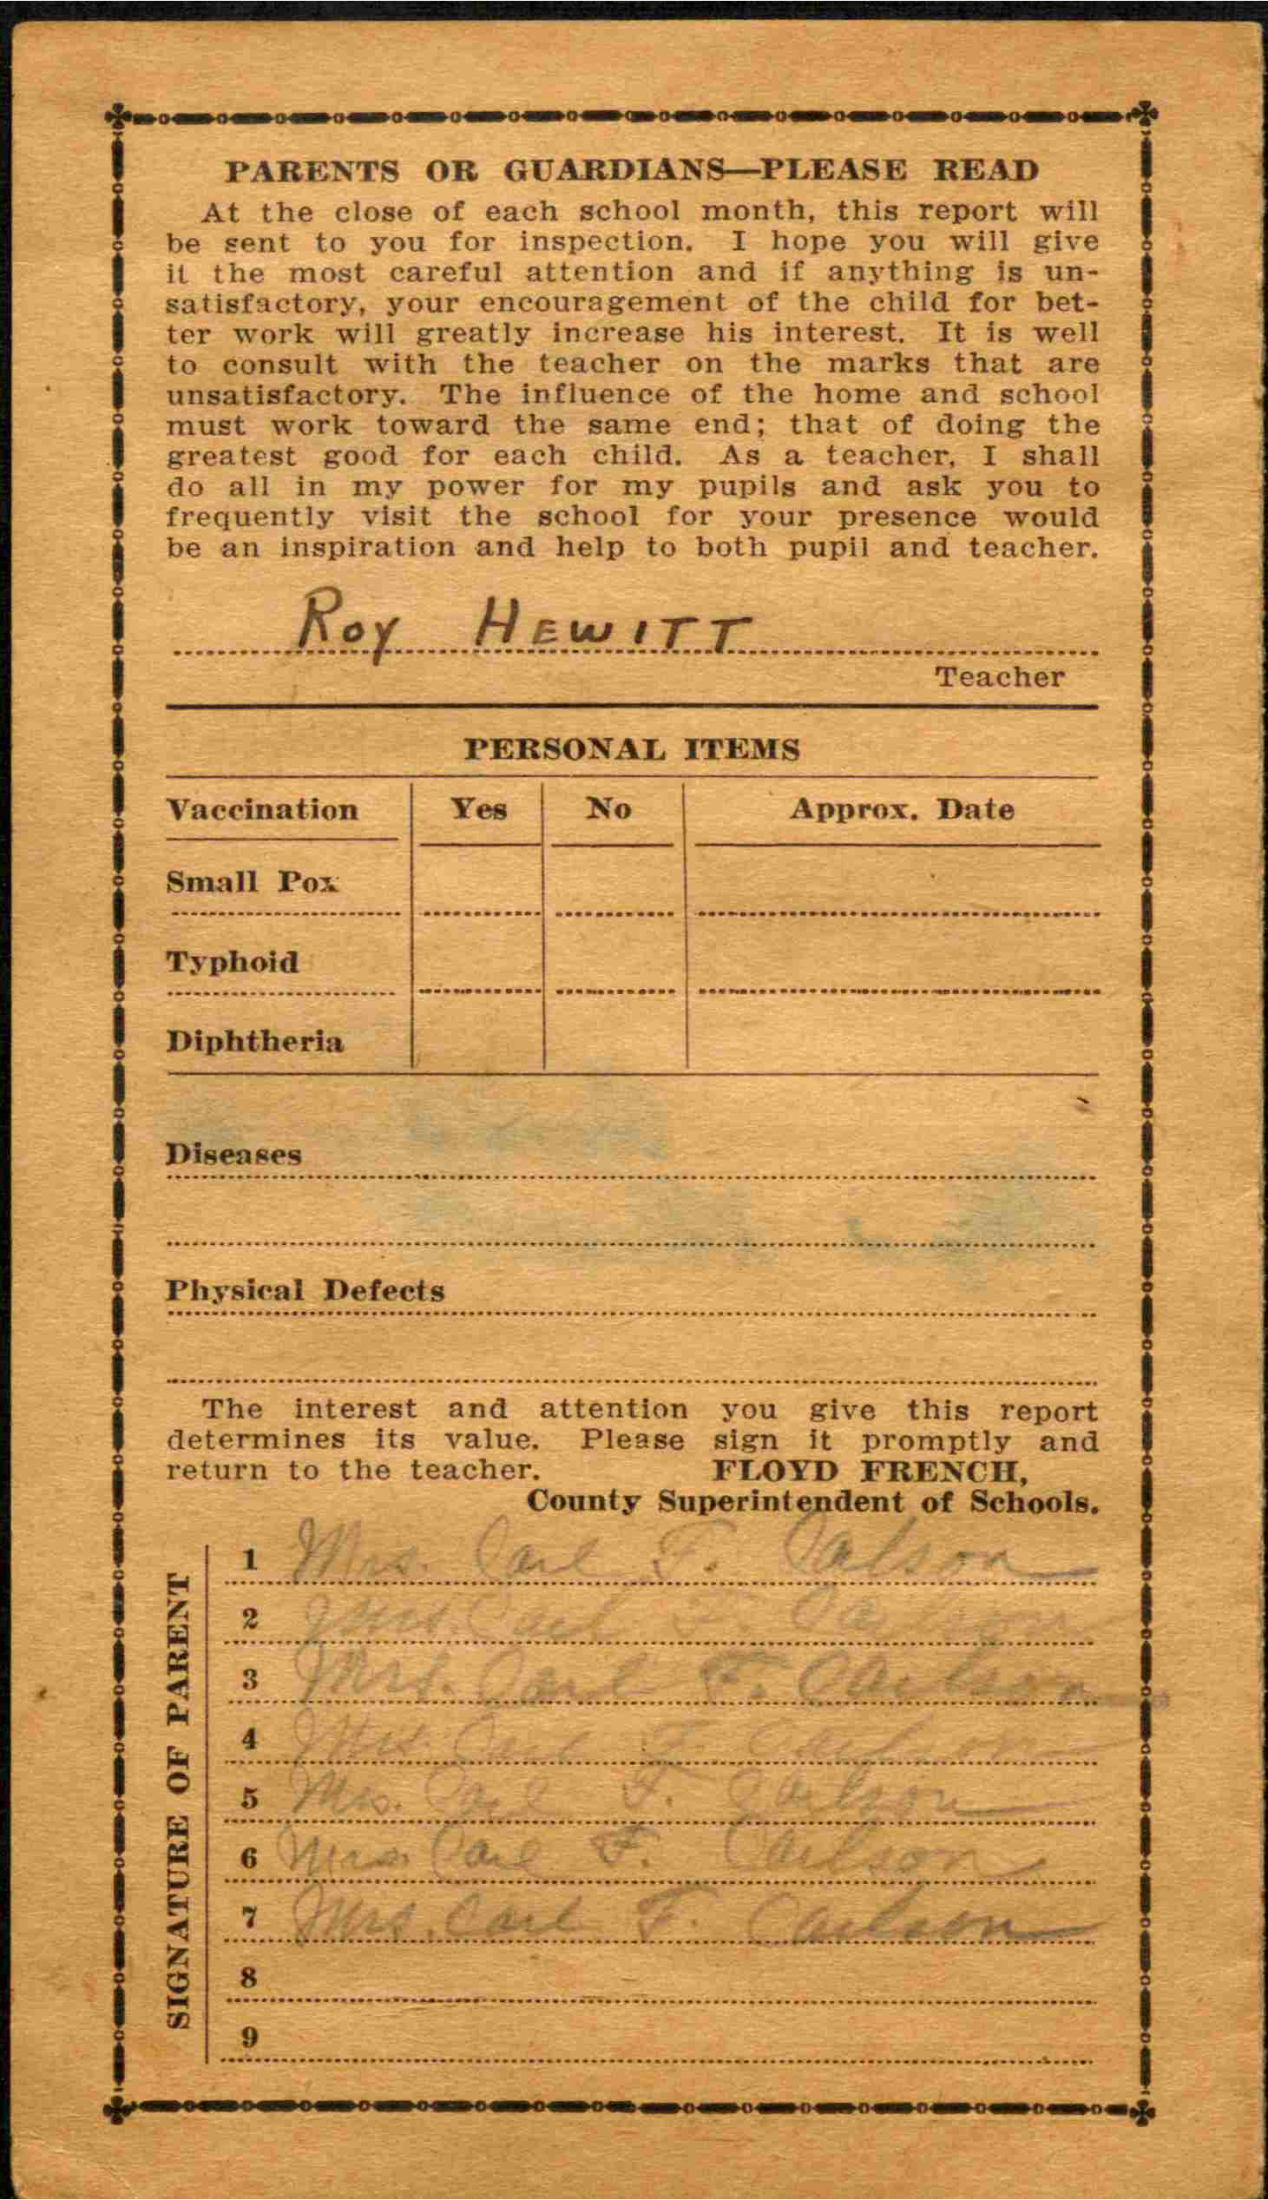 PARENTS OR GUARDIANS—PLEASE READ
At the close of each school month, this report will
be sent to you for inspection. I hope you will give
it the most careful attention and if anything is un-
satisfactory, your encouragement of the child for bet-
ter work will greatly increase his interest. It is well
to consult with the teacher on the marks that are
unsatisfactory. The influence of the home and school
must work toward the same end; that of doing the
greatest good for each child. As a teacher, I shall
do all in my power for my pupils and ask you to
frequently visit the school for your presence would
be an inspiration and help to both pupil and teacher.
Roy HEWITT
Teacher
PERSONAL ITEMS
Vaccination Yes No Approx. Date
Small Pox
Typhoid
Diphtheria
Diseases
Physical Defects
The interest and attention you give this report
determines its value. Please sign it promptly and
return to the teacher. FLOYD FRENCH,
County Superintendent of Schools.
SIGNATURE OF PARENT
1 Mrs. Carl F. Calson
2 Mrs. Carl F. Carlson
3 Mrs. Carl F. Carlson
4 Mrs. Carl F. Carlson
5 Mrs. Carl F. Carlson
6 Mrs. Carl F. Carlson
7 Mrs. Carl F. Carlson
8
9